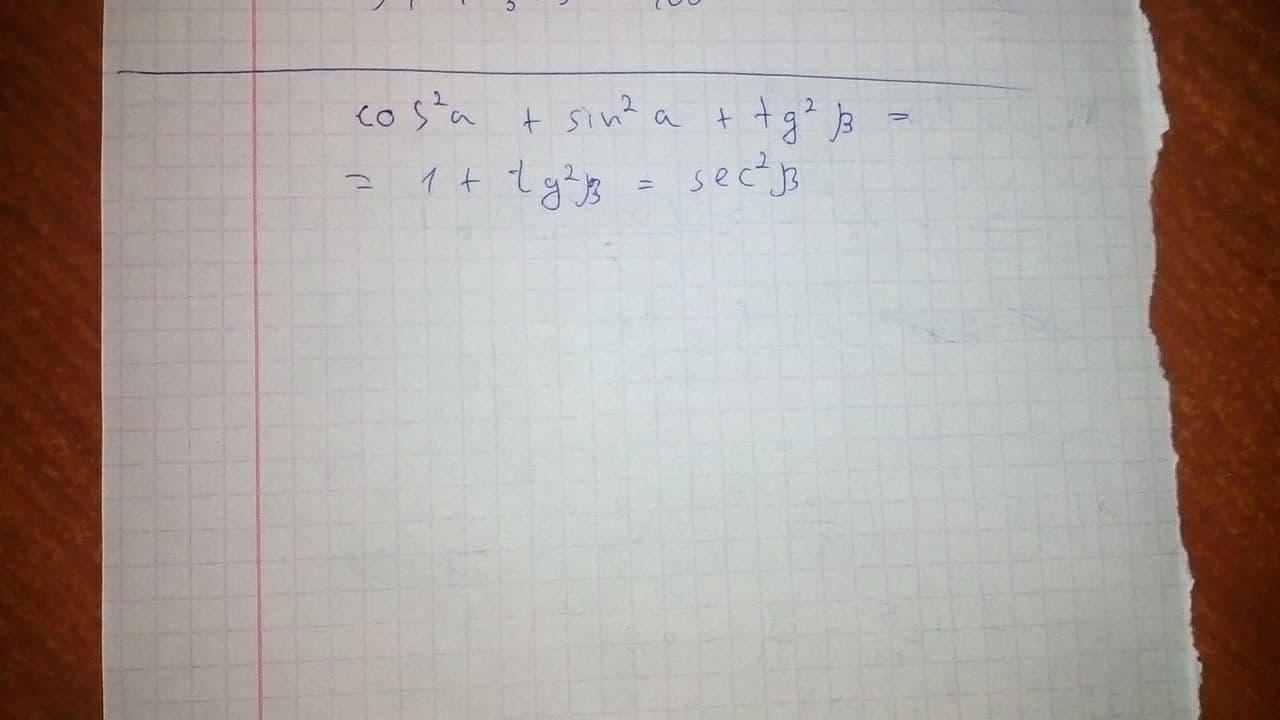 cos²a + sin² a + tg² β =
= 1 + tg²β = sec²β